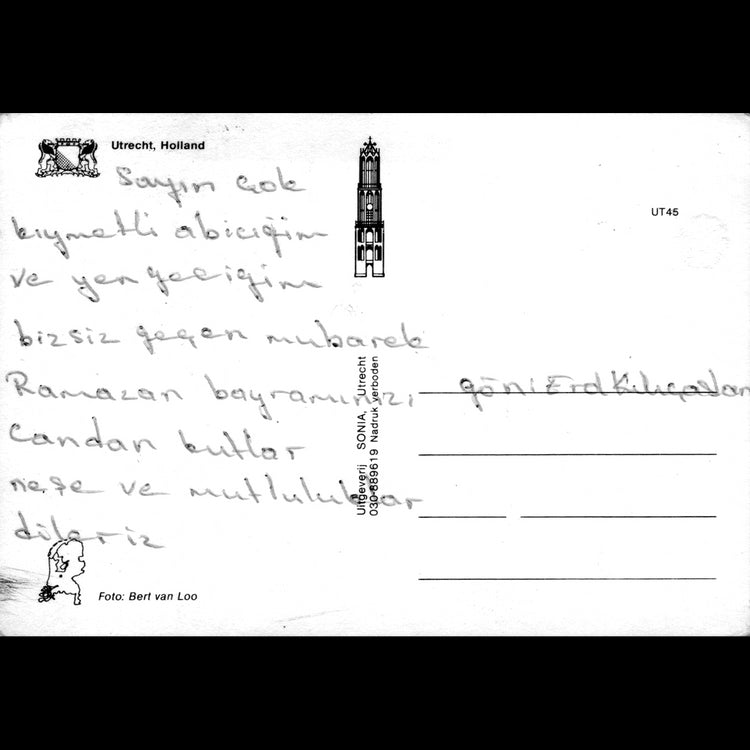 Utrecht, Holland
UT45
Sayın çok
kıymetli abiciğim
ve yengeciğim
bizsiz geçen mubarek
Ramazan bayramınızı
candan kutlar
neşe ve mutluluklar
dileriz
Uitgeverij SONIA, Utrecht
030-889619 Nadruk verboden
Foto: Bert van Loo